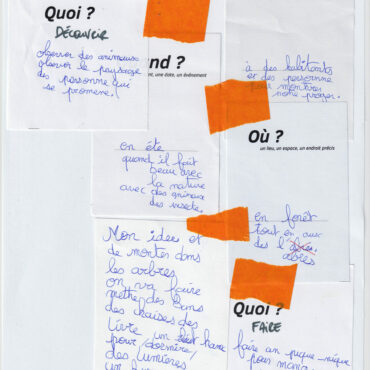 Quoi ?
DÉCOUVRIR
observer des animeaux
observer le paysage
des personne qui
se promene.
nd ?
ent, une date, un événement
à des habitants
et des personne
pour montrer
notre projet.
on été
quand il fait
beau avec
la nature
avec des animaux
des insecte.
Où ?
un lieu, un espace, un endroit précis
en forêt
tout en aux
des l'
arbres
Mon idee et
de monter dans
les arbres
on va faire
mettre des bans
des chaises des
livre un hamac
pour dormire
des lumières
un
Quoi ?
FAIRE
faire un pique-nique
pour mang